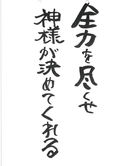 全力を尽くせ
神様が決めてくれる